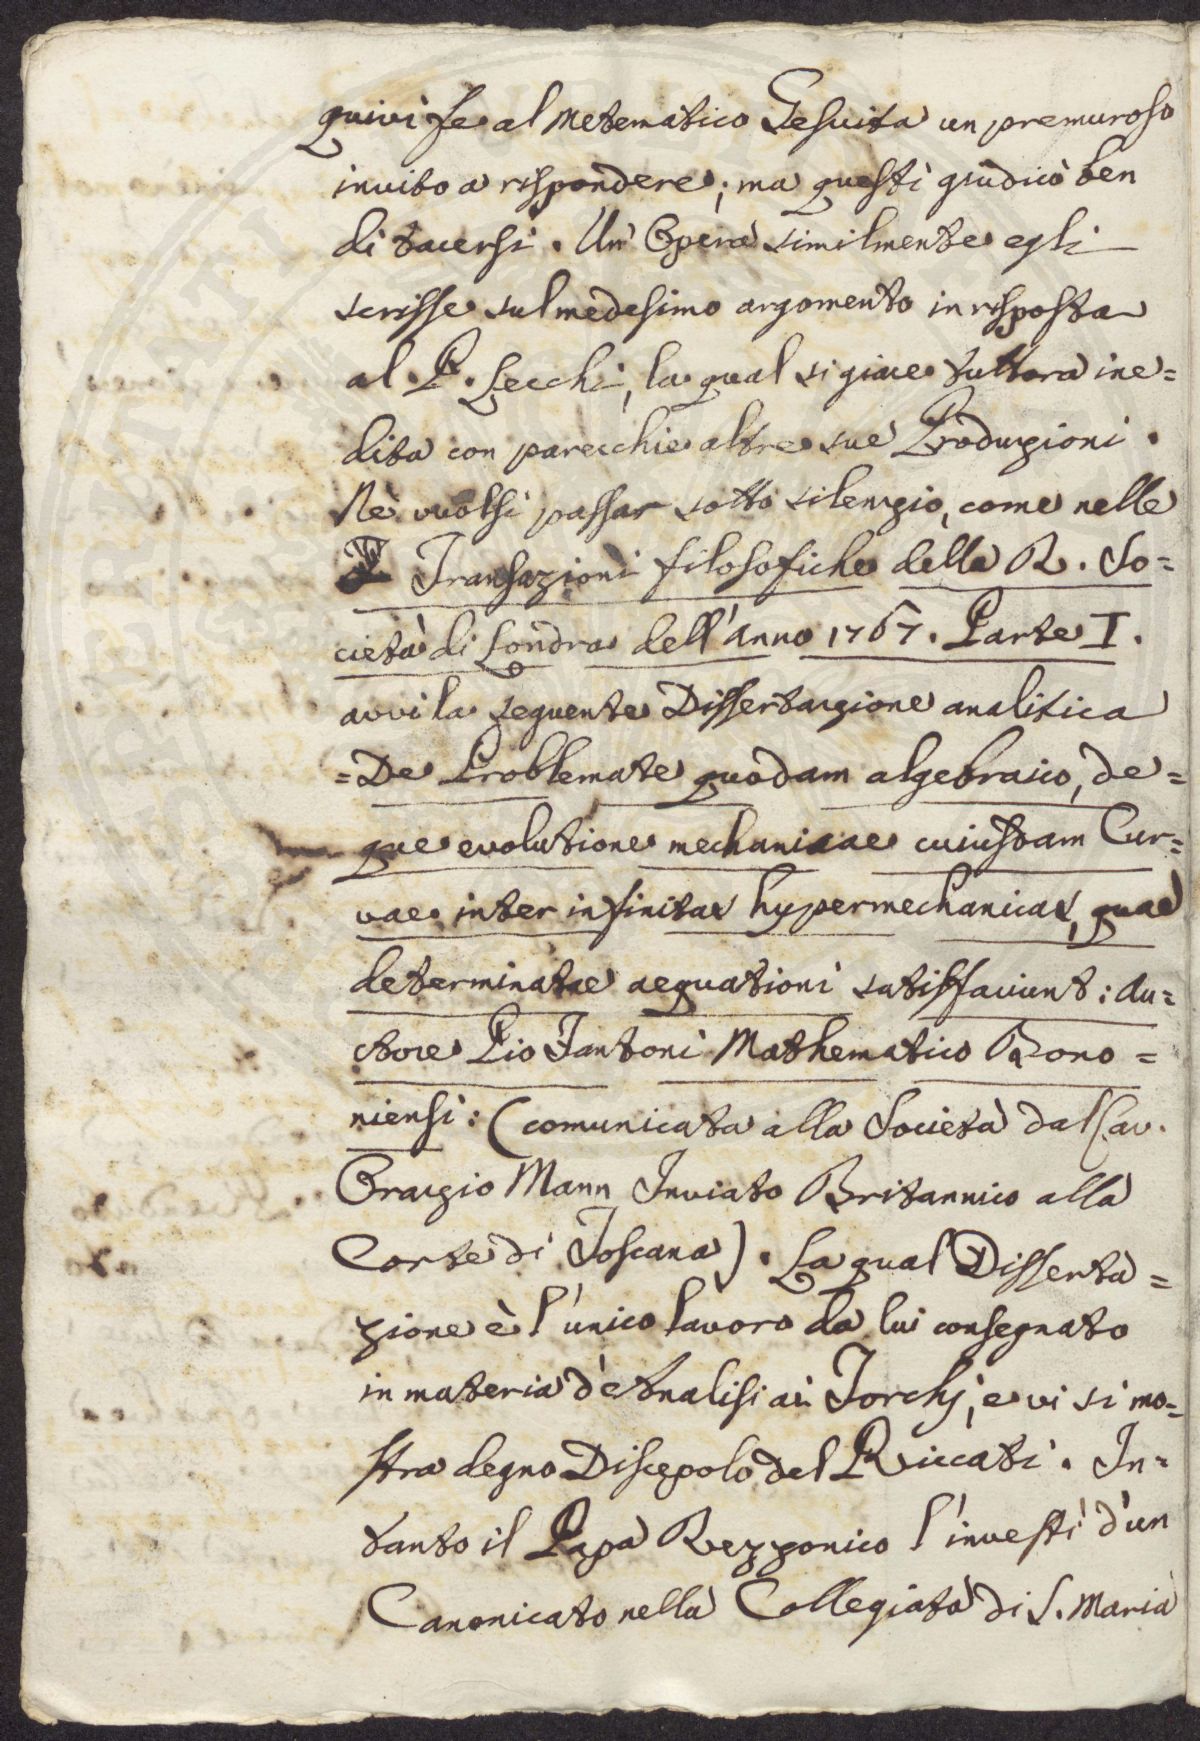 quivi fe al Metematico Gesuita un premuroso
invito a rispondere; ma questi giudicò ben
di tacersi. Un' Opera similmente egli
scrisse sul medesimo argomento in risposta
al P. Lecchi, la qual si giace tuttora ine=
dita con parecchie altre sue Produzioni.
Nè vuolsi passar sotto silenzio, come nelle
Transazioni filosofiche della R. So=
cietà di Londra dell'anno 1767. Parte I.
avvi la seguente Dissertazione analitica
=De Problemate quodam algebraico, de=
que evolutione mechanicae cuiusdam Cur=
vae inter infinitas hypermechanicas, quae
determinatae aequationi satisfaciunt: Au=
ctore Pio Fantoni Mathematico Bono=
niensi: (comunicata alla Società dal Cav.
Orazio Mann Inviato Britannico alla
Corte di Toscana). La qual Disserta=
zione è l'unico lavoro da lui consegnato
in materia d'Analisi ai Torchj, e vi si mo=
stra degno Discepolo del Riccati. In=
tanto il Papa Rezzonico l'investì d'un
Canonicato nella Collegiata di S. Maria